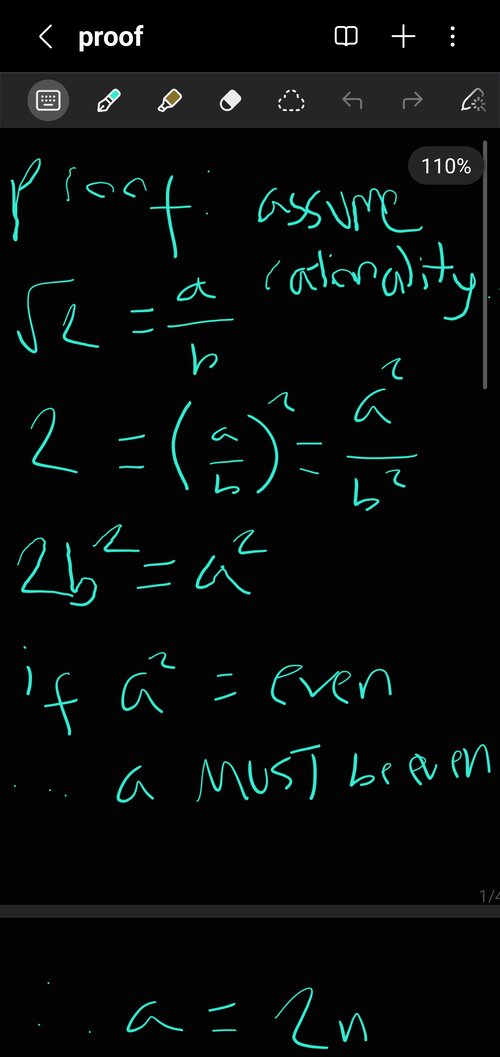 proof
110%
Proof: assume
rationality.
√2 = a/b
2 = (a/b)² = a²/b²
2b² = a²
if a² = even
∴ a MUST be even
1/4
∴ a = 2n